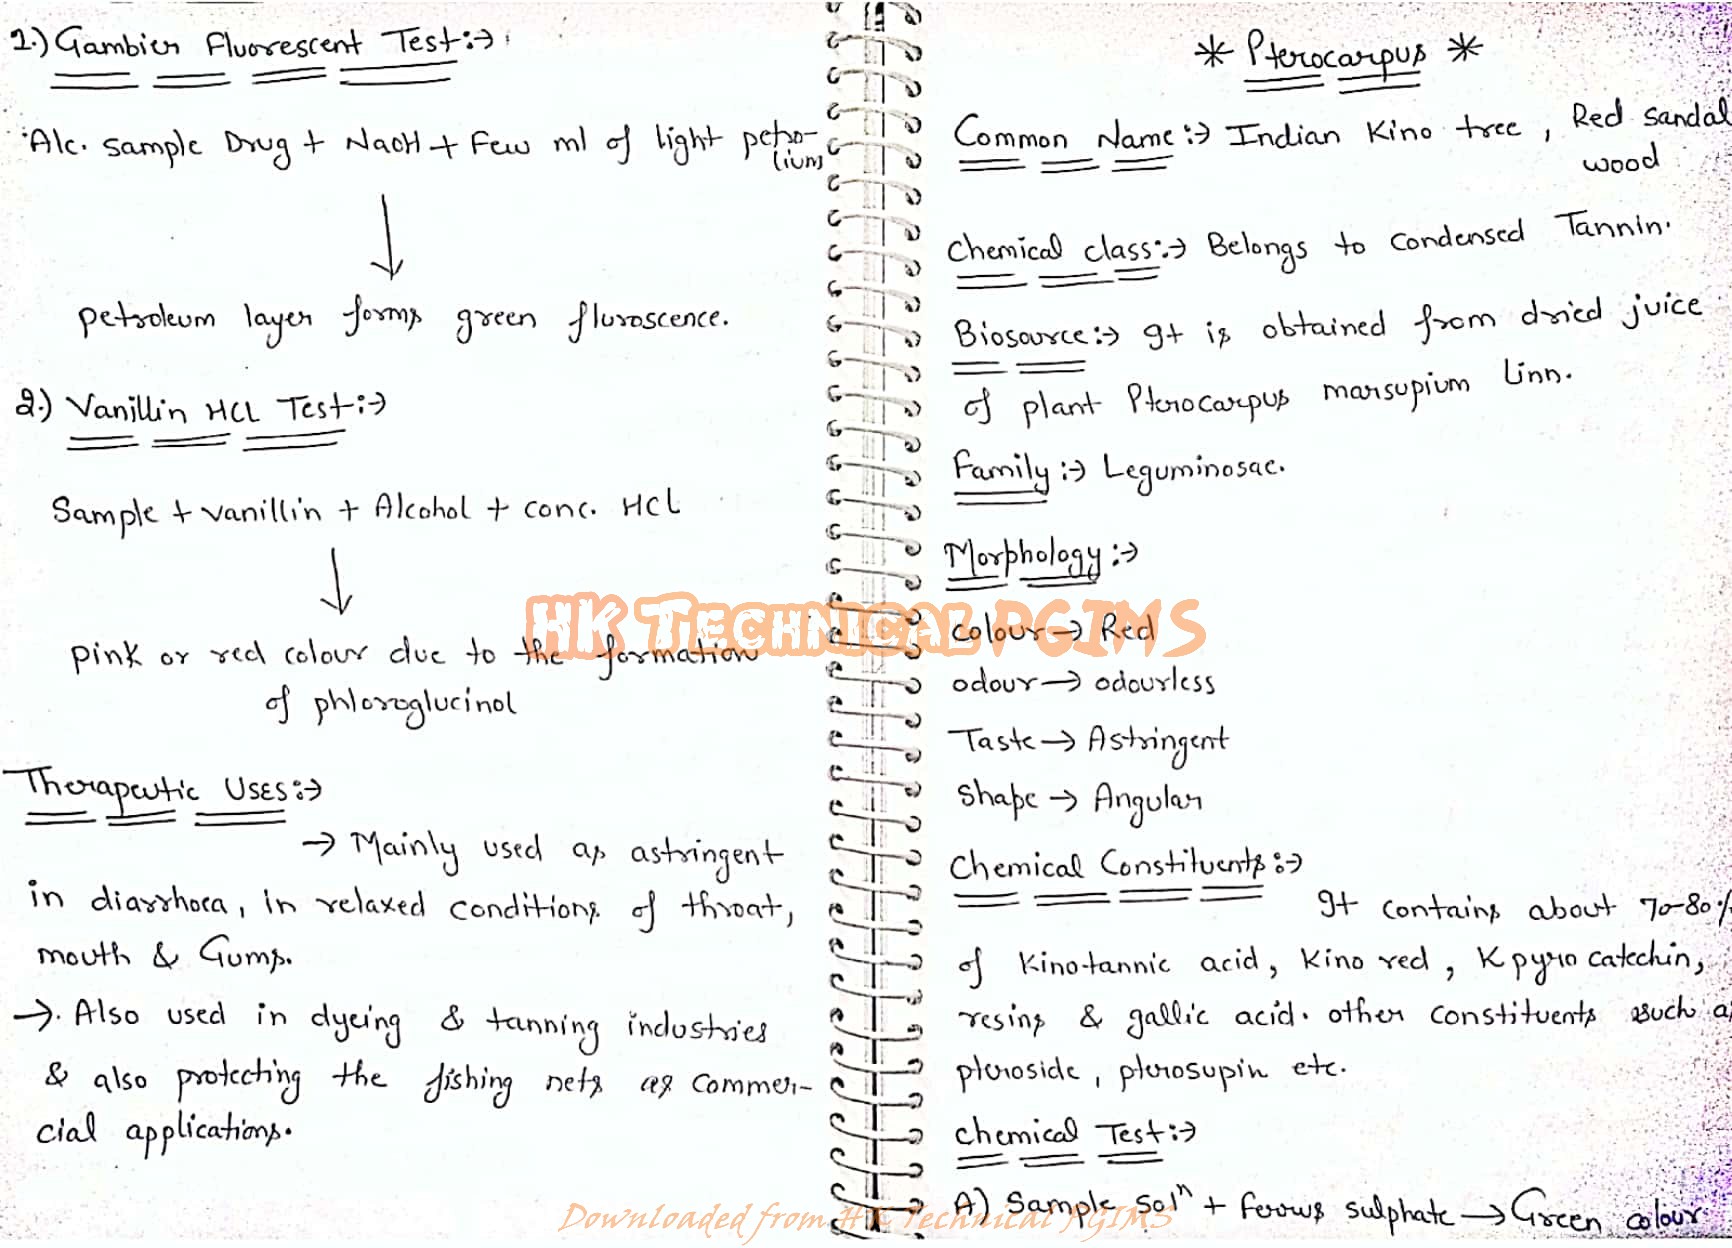 1.) Gambier Fluorescent Test :→
Alc. sample Drug + NaOH + Few ml of light petro-
lium
petroleum layer forms green fluroscence.
2.) Vanillin HCL Test :→
Sample + vanillin + Alcohol + conc. HCL
pink or red colour due to the formation
of phloroglucinol
Therapeutic Uses :→
→ Mainly used as astringent
in diarrhoea, in relaxed conditions of throat,
mouth & Gums.
→. Also used in dyeing & tanning industries
& also protecting the fishing nets as commer-
cial applications.
* Pterocarpus *
Common Name :→ Indian Kino tree, Red sandal
wood
Chemical class :→ Belongs to condensed Tannin.
Biosource :→ It is obtained from dried juice
of plant Pterocarpus marsupium Linn.
Family :→ Leguminosae.
Morphology :→
colour → Red
odour → odourless
Taste → Astringent
Shape → Angular
Chemical Constituents :→
It contains about 70-80%
of Kinotannic acid, Kino red, K pyro catechin,
resins & gallic acid. other constituents such as
pteroside, pterosupin etc.
chemical Test :→
A) Sample Solⁿ + ferrous sulphate → Green colour
HK Technical PGIMS
Downloaded from HK Technical PGIMS